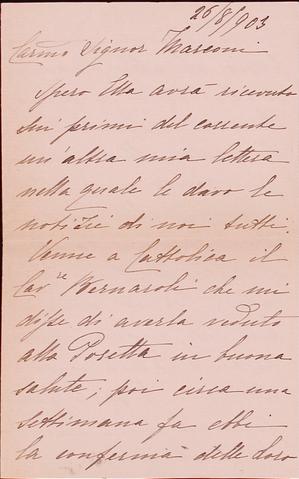 26/8/903
Carmo Signor Marconi
Spero Ella avrà ricevuto
sui primi del corrente
un'altra mia lettera
nella quale le davo le
notizie di noi tutti.
Venne a Cattolica il
Cavre Bernaroli che mi
disse di averla veduto
alla Posetta in buona
salute; poi circa una
settimana fa ebbi
la conferma delle loro